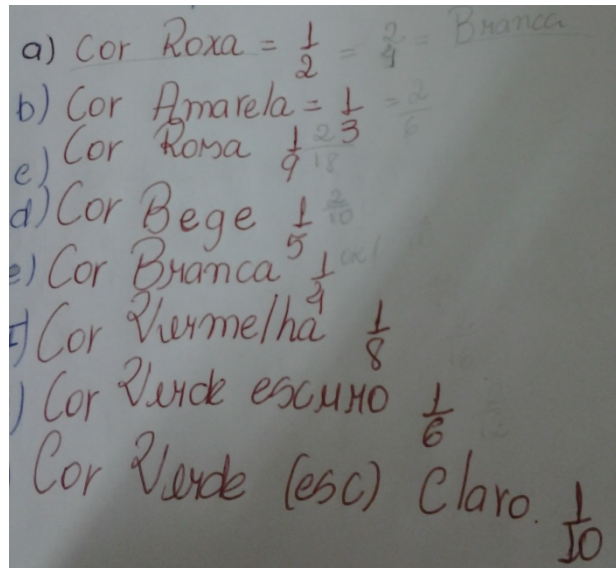 a) Cor Roxa = 1/2 = 2/4 = Branca
b) Cor Amarela = 1/3 = 2/6
c) Cor Rosa 1/9 2/18
d) Cor Bege 1/5 2/10
e) Cor Branca 1/4
f) Cor Vermelha 1/8
) Cor Verde escuro 1/6
Cor Verde (esc) Claro. 1/10